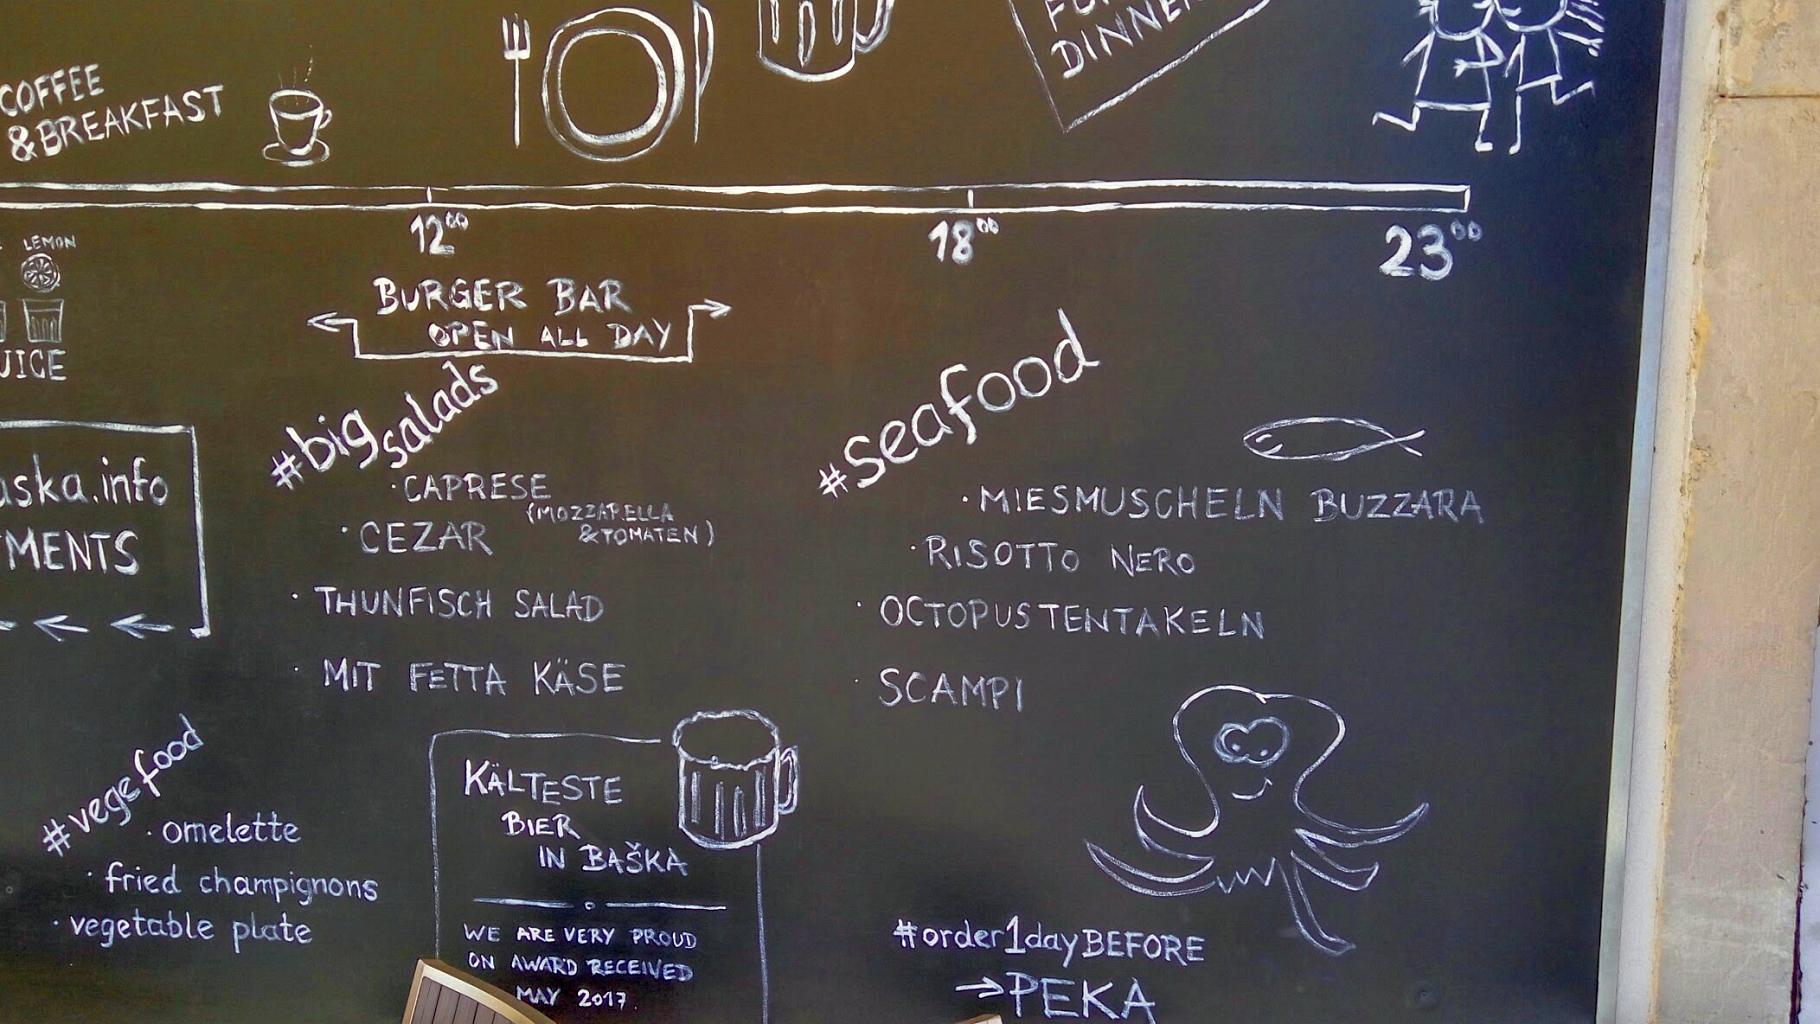 COFFEE
& BREAKFAST
DINNER
12⁰⁰
18⁰⁰
23⁰⁰
LEMON
BURGER BAR
OPEN ALL DAY
#big salads
· CAPRESE
(MOZZARELLA
& TOMATEN)
· CEZAR
· THUNFISCH SALAD
· MIT FETTA KÄSE
#seafood
· MIESMUSCHELN BUZZARA
· RISOTTO NERO
· OCTOPUSTENTAKELN
· SCAMPI
aska.info
MENTS
#vegefood
· omelette
· fried champignons
· vegetable plate
KÄLTESTE
BIER
IN BAŠKA
WE ARE VERY PROUD
ON AWARD RECEIVED
MAY 2017.
#order1dayBEFORE
→ PEKA